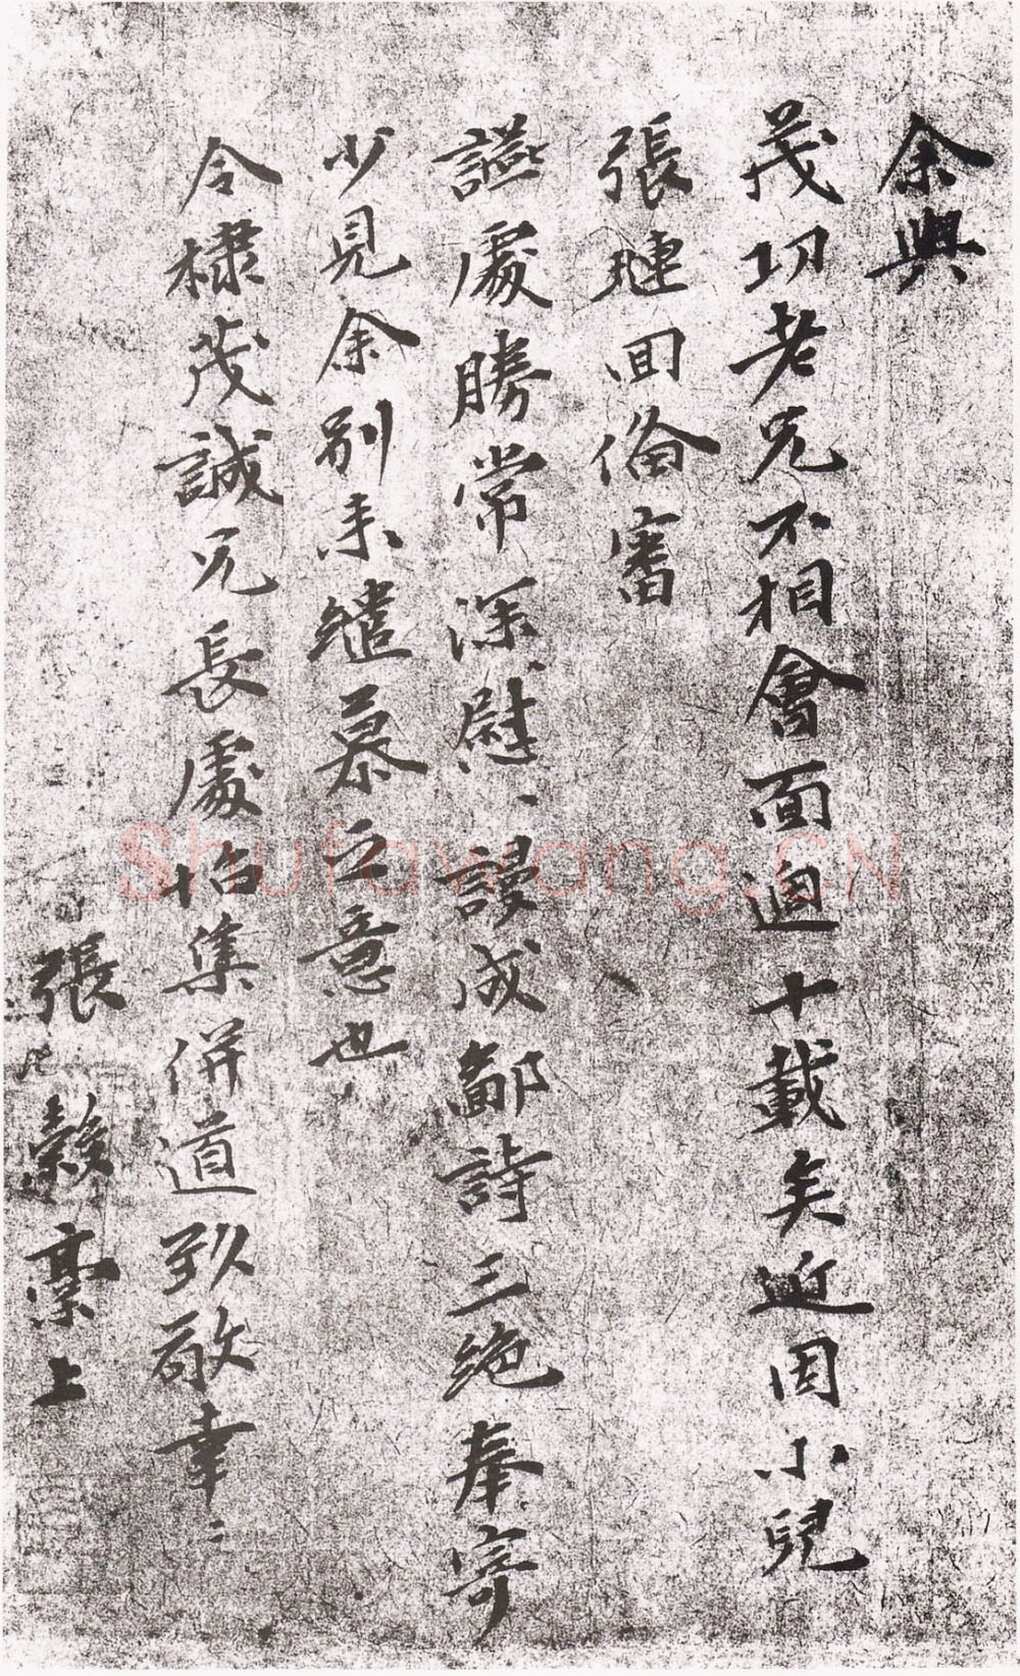 余與
茂切老兄不相會面逈十載矣近因小兒
張璉回俻審
讌處勝常深慰、謾成鄙詩三絶奉寄
少見余別来繾慕之意也
令棣茂誠兄長處怡集併道致敬幸〻
張 縠 稾上
Shufawang.CN